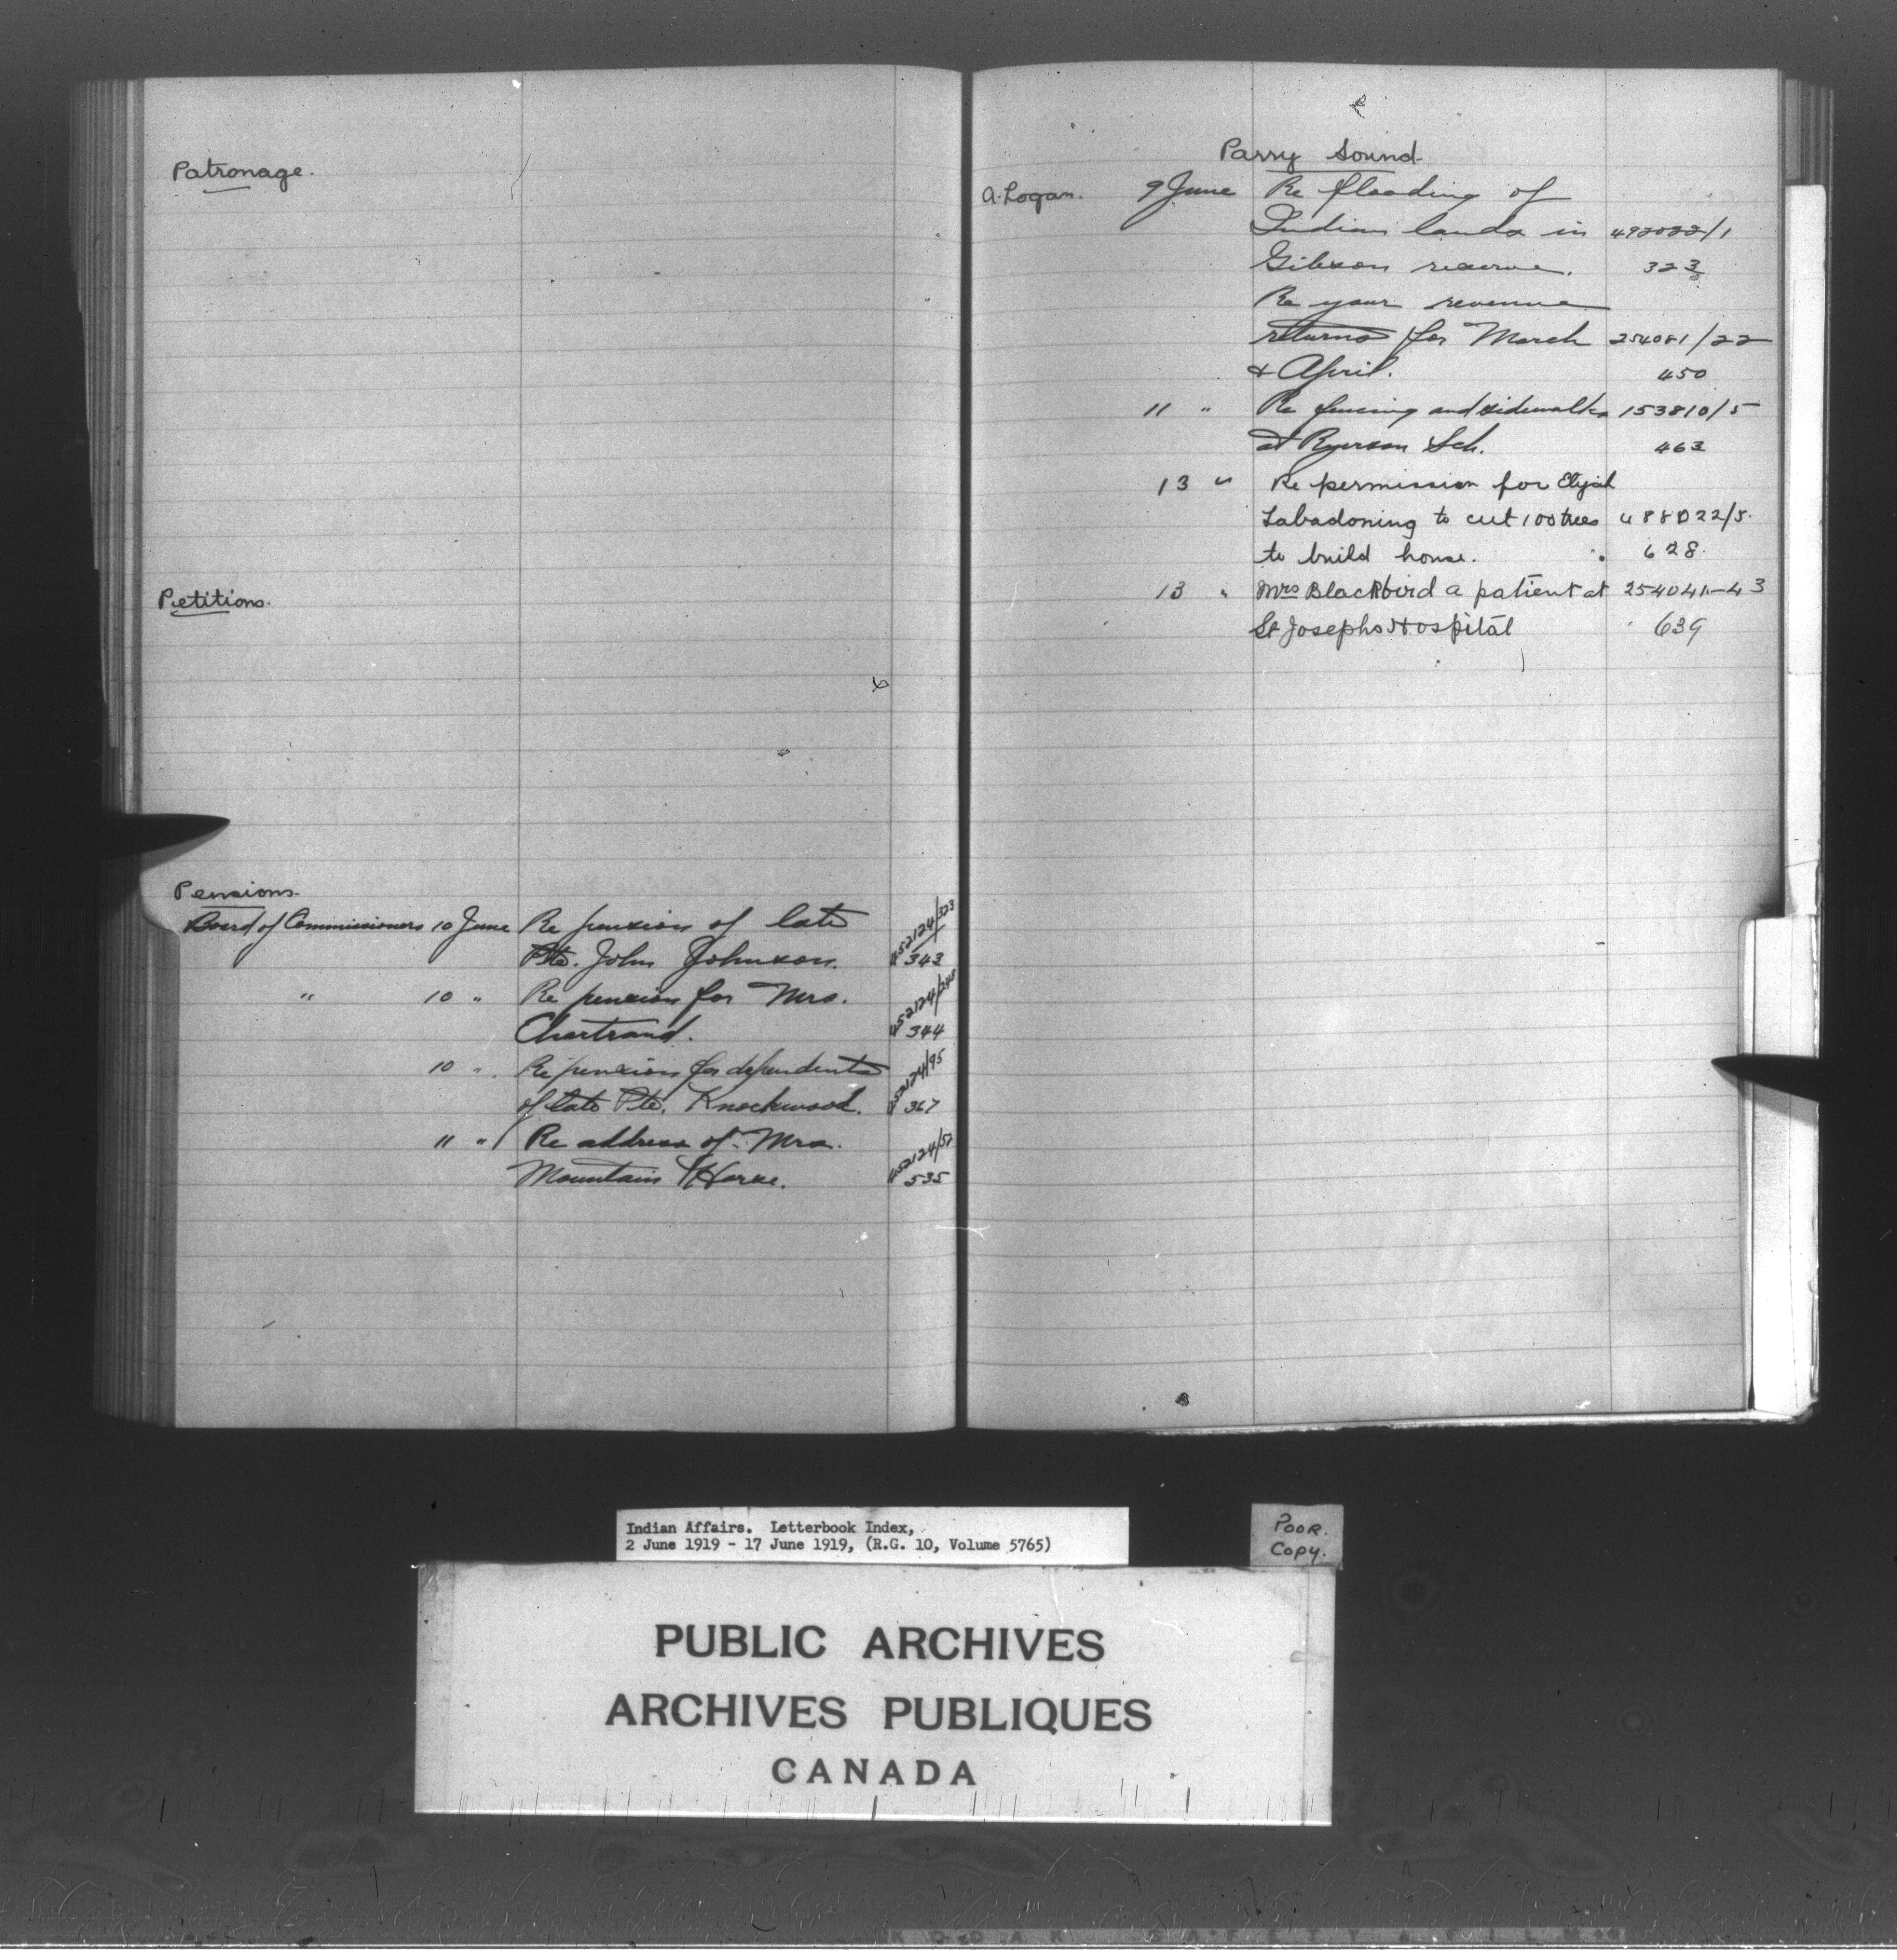 Patronage.
Petitions.
Pensions.
Board of Commissioners 10 June Re pension of late 452124/323
Pte. John Johnson. 343
" 10 " Re pension for Mrs. 452124/248
Chartrand. 344
10 " Re pension for dependents 452124/95
of late Pte. Knockwood. 367
11 " Re address of Mrs. 452124/52
Mountain Horse. 535
Parry Sound
A. Logan. 9 June Re flooding of
Indian lands in 492022/1
Gibson reserve. 323
Re your revenue
returns for March 254081/22
& April. 450
11 " Re fencing and sidewalks 153810/5
at Ryerson Sch. 463
13 " Re permission for Elijah
Labadoning to cut 100 trees 488022/5.
to build house. 628.
13 " Mrs Blackbird a patient at 254041-43
St Josephs Hospital 639
Indian Affairs. Letterbook Index,
2 June 1919 - 17 June 1919, (R.G. 10, Volume 5765)
Poor.
Copy.
PUBLIC ARCHIVES
ARCHIVES PUBLIQUES
CANADA